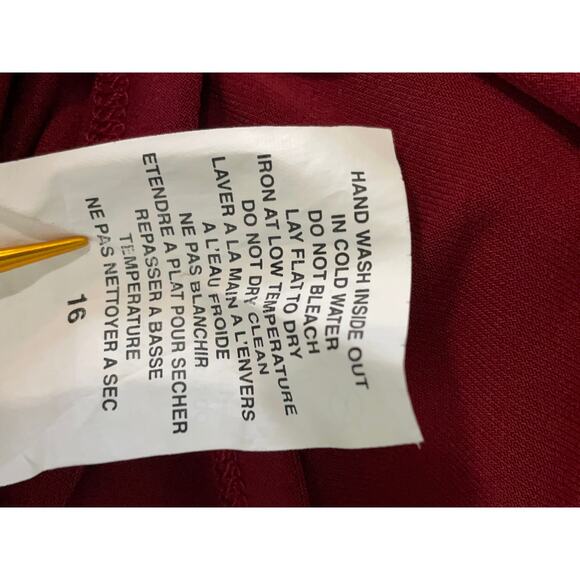 HAND WASH INSIDE OUT
IN COLD WATER
DO NOT BLEACH
LAY FLAT TO DRY
IRON AT LOW TEMPERATURE
DO NOT DRY CLEAN
LAVER A LA MAIN A L'ENVERS
A L'EAU FROIDE
NE PAS BLANCHIR
ETENDRE A PLAT POUR SECHER
REPASSER A BASSE
TEMPERATURE
NE PAS NETTOYER A SEC
16